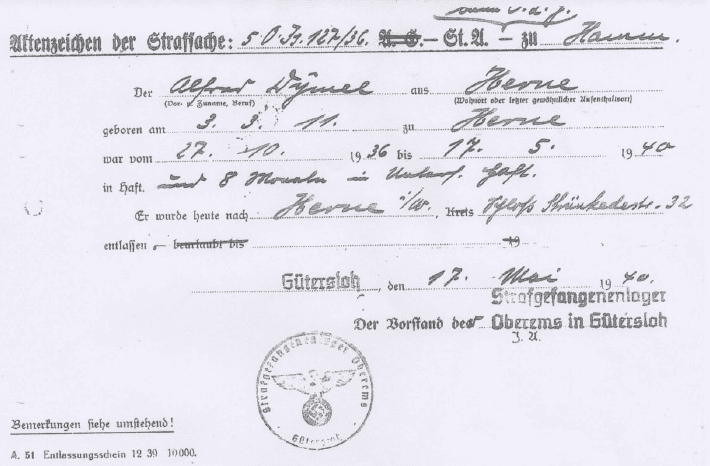 Aktenzeichen der Strafsache: 5 O.Js. 127/36. A. G. – St. A. – zu Hamm.
Der Alfred Dymel aus Herne
(Vor- u. Zuname, Beruf) (Wohnort oder letzter gewöhnlicher Aufenthaltsort)
geboren am 3. 3. 11. zu Herne
war vom 27. 10. 1936 bis 17. 5. 1940
in Haft. und 8 Monate in Unters. Haft.
Er wurde heute nach Herne i/W., Kreis Schloß Strünkedestr. 32
entlassen – beurlaubt bis 19
Gütersloh, den 17. Mai 1940.
Strafgefangenenlager
Der Vorstand des Oberems in Gütersloh
J. A.
Strafgefangenenlager Oberems
Gütersloh
Bemerkungen siehe umstehend!
A. 51 Entlassungsschein 12 39 10000.